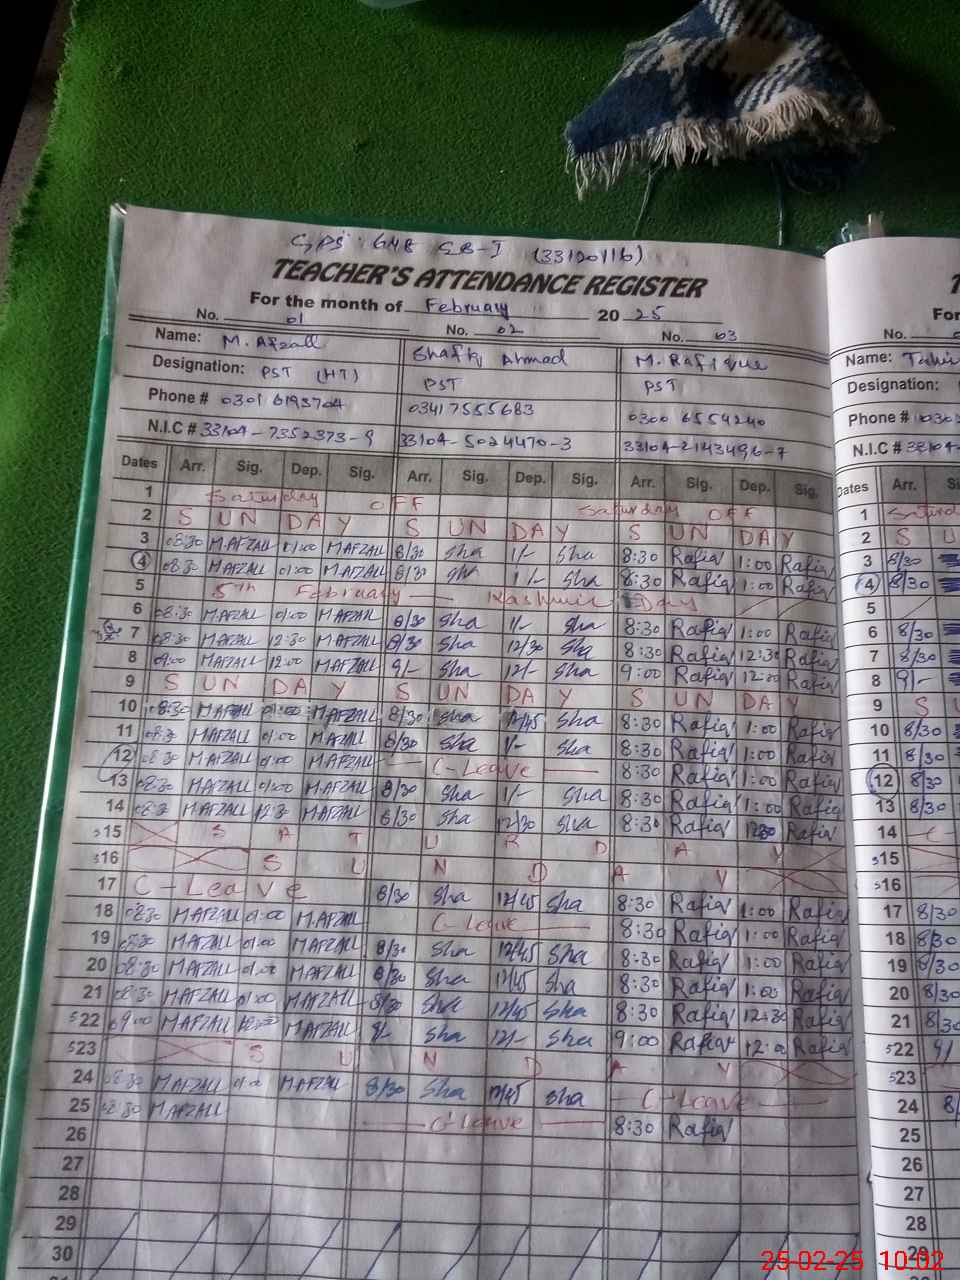 GPS: 648 GB-I (33120116)
TEACHER'S ATTENDANCE REGISTER
For the month of February 20 25
No. 01 No. 02 No. 03
Name: M. Afzall Shafiq Ahmad M. Rafique Name:
Designation: PST (HT) PST PST Designation:
Phone # 0301 6193704 03417555683 0300 6554240 Phone #
N.I.C # 33104-7352373-9 33104-5024470-3 33104-2143496-7 N.I.C #
Dates Arr. Sig. Dep. Sig. Arr. Sig. Dep. Sig. Arr. Sig. Dep. Sig. Dates Arr.
1 Saturday OFF Saturday OFF 1
2 S UN DA Y S UN DA Y S UN DA Y 2 S U
3 08:30 M AFZALL 01:00 M AFZALL 8/30 Sha 1/- Sha 8:30 Rafiq 1:00 Rafiq 3 8/30
4 08:30 M AFZALL 01:00 M AFZALL 8/30 Sha 1/- Sha 8:30 Rafiq 1:00 Rafiq 4 8/30
5 5th February Kashmir Day 5
6 08:30 M AFZALL 01:00 M AFZALL 8/30 Sha 1/- Sha 8:30 Rafiq 1:00 Rafiq 6 8/30
7 08:30 M AFZALL 12:30 M AFZALL 8/30 Sha 12/30 Sha 8:30 Rafiq 12:30 Rafiq 7 8/30
8 09:00 M AFZALL 12:00 M AFZALL 9/- Sha 12/- Sha 9:00 Rafiq 12:00 Rafiq 8 9/-
9 S UN DA Y S UN DA Y S UN DA Y 9 S U
10 08:30 M AFZALL 01:00 M AFZALL 8/30 Sha 12/45 Sha 8:30 Rafiq 1:00 Rafiq 10 8/30
11 08:30 M AFZALL 01:00 M AFZALL 8/30 Sha 1/- Sha 8:30 Rafiq 1:00 Rafiq 11 8/30
12 08:30 M AFZALL 01:00 M AFZALL C-Leave 8:30 Rafiq 1:00 Rafiq 12 8/30
13 08:30 M AFZALL 01:00 M AFZALL 8/30 Sha 1/- Sha 8:30 Rafiq 1:00 Rafiq 13 8/30
14 08:30 M AFZALL 12:30 M AFZALL 8/30 Sha 12/30 Sha 8:30 Rafiq 12:30 Rafiq 14
S15 S A T U R D A Y S15
S16 S U N D A Y S16
17 C-Leave 8/30 Sha 12/45 Sha 8:30 Rafiq 1:00 Rafiq 17 8/30
18 08:30 M AFZALL 01:00 M AFZALL C-Leave 8:30 Rafiq 1:00 Rafiq 18 8/30
19 08:30 M AFZALL 01:00 M AFZALL 8/30 Sha 12/45 Sha 8:30 Rafiq 1:00 Rafiq 19 8/30
20 08:30 M AFZALL 01:00 M AFZALL 8/30 Sha 12/45 Sha 8:30 Rafiq 1:00 Rafiq 20 8/30
21 08:30 M AFZALL M AFZALL 8/30 Sha 12/45 Sha 8:30 Rafiq 12:30 Rafiq 21 8/30
S22 09:00 M AFZALL M AFZALL 9/- Sha 12/- Sha 9:00 Rafiq 12:00 Rafiq S22 9/
S23 S U N D A Y S23
24 08:30 M AFZALL 01:00 M AFZALL 8/30 Sha 12/45 Sha C-Leave 24 8/
25 08:30 M AFZALL C-Leave 8:30 Rafiq 25
26 26
27 27
28 28
29 29
30
25-02-25 10:02